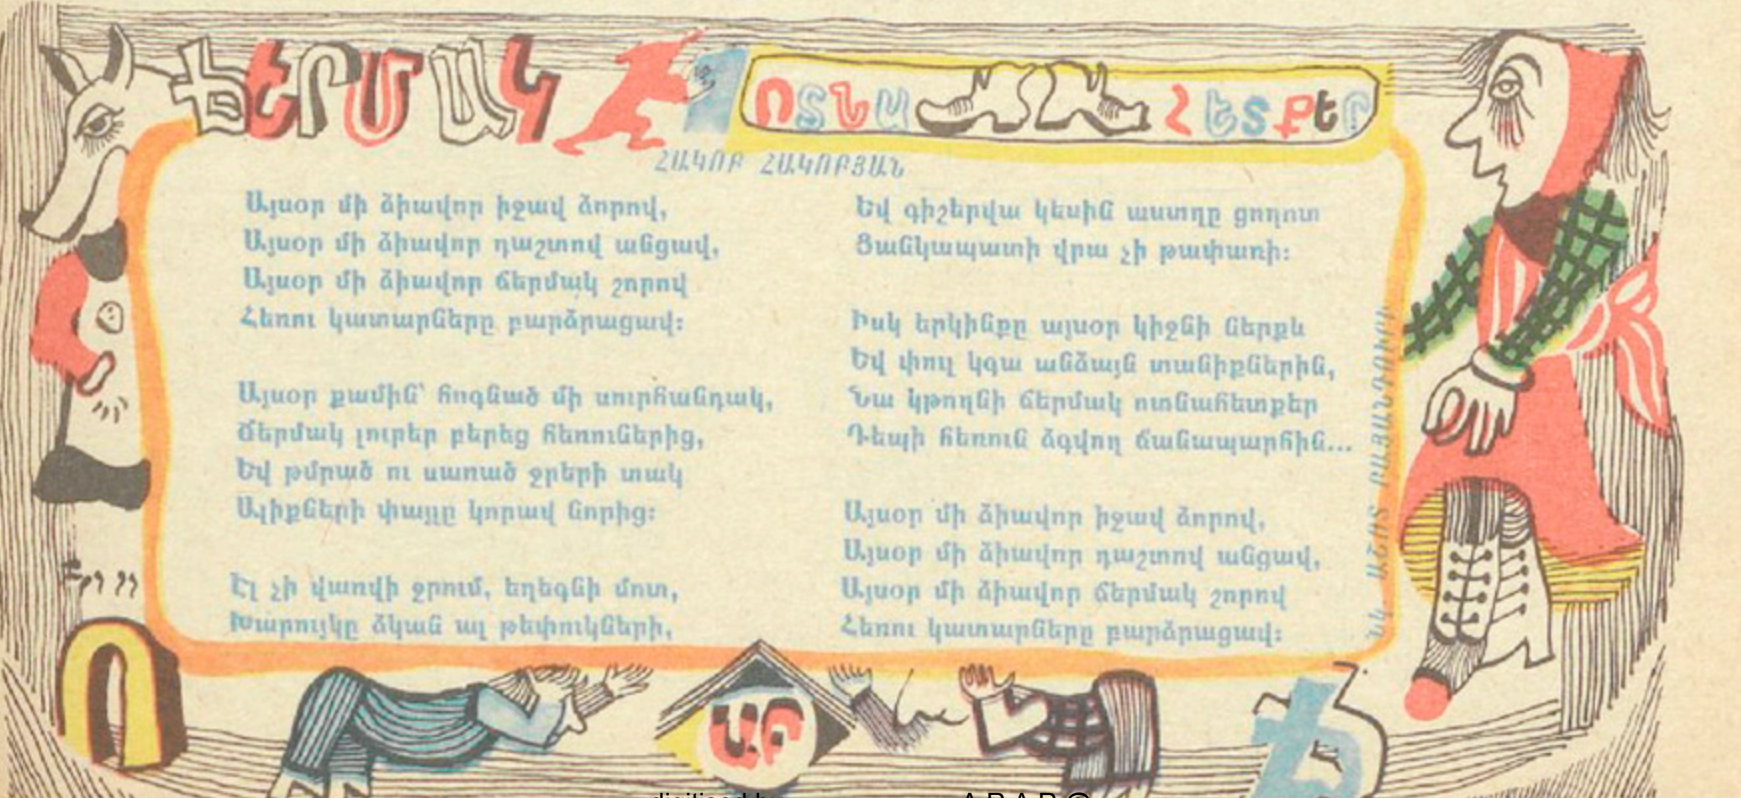 ՃԵՐՄԱԿ ՈՏՆԱՀԵՏՔԵՐ
ՀԱԿՈԲ ՀԱԿՈԲՅԱՆ
Այսօր մի ձիավոր իջավ ձորով,
Այսօր մի ձիավոր դաշտով անցավ,
Այսօր մի ձիավոր ճերմակ շորով
Հեռու կատարները բարձրացավ։
Այսօր քամին՝ հոգնած մի սուրհանդակ,
Ճերմակ լուրեր բերեց հեռուներից,
Եվ թմրած ու սառած ջրերի տակ
Ալիքների փայլը կորավ նորից։
Էլ չի վառվի ջրում, եղեգնի մոտ,
Խարույկը ձկան ալ թեփուկների,
Եվ գիշերվա կեսին աստղը ցողոտ
Ցանկապատի վրա չի թափառի։
Իսկ երկինքը այսօր կիջնի ներքև
Եվ փուլ կգա անձայն տանիքներին,
Նա կթողնի ճերմակ ոտնահետքեր
Դեպի հեռուն ձգվող ճանապարհին...
Այսօր մի ձիավոր իջավ ձորով,
Այսօր մի ձիավոր դաշտով անցավ,
Այսօր մի ձիավոր ճերմակ շորով
Հեռու կատարները բարձրացավ։
ՆԿ. ԱՇՈՏ ԲԱՅԱՆԴՈՒՐԻ
Ո
ԱԲ